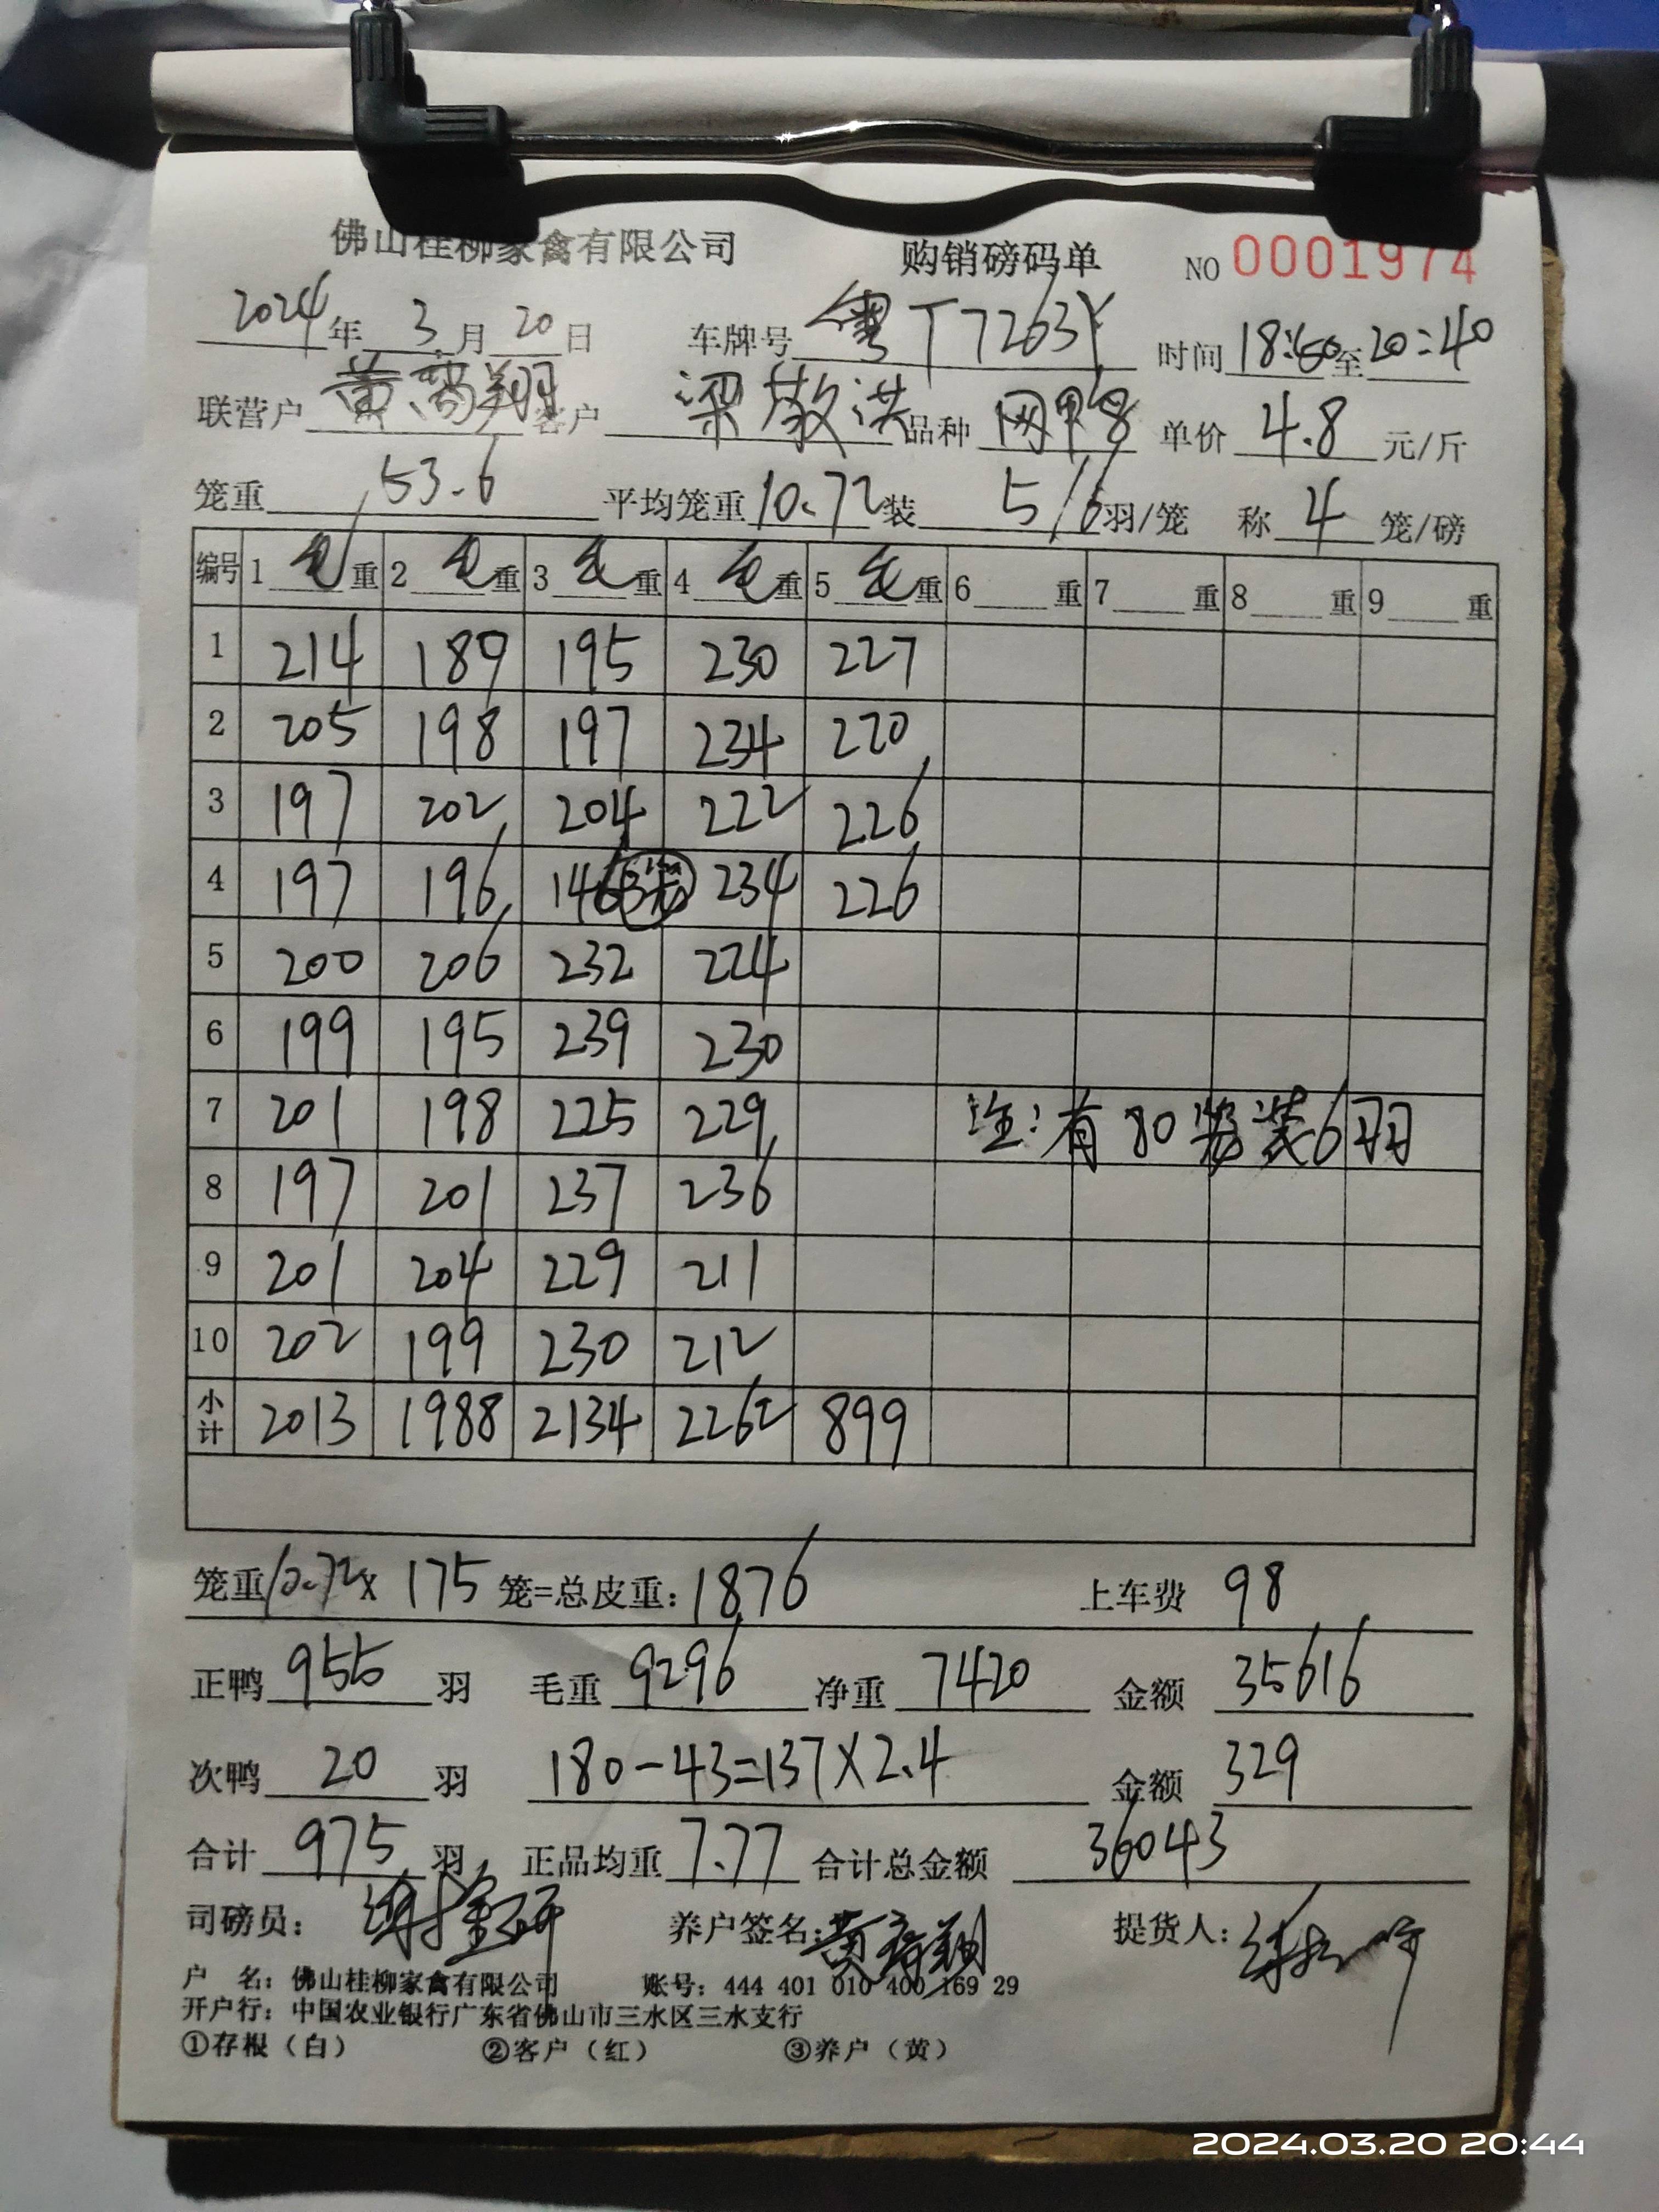 佛山桂柳家禽有限公司 购销磅码单 NO 0001974
2024年 3月 20日 车牌号 粤T7263Y 时间 18:50至20:40
联营户 黄 翔 客户 梁敬洪 品种 网鸭 单价 4.8 元/斤
笼重 53.6 平均笼重 10.72 装 5/6 羽/笼 称 4 笼/磅
编号 1 毛重 2 毛重 3 毛重 4 毛重 5 毛重 6 重 7 重 8 重 9 重
1 214 189 195 230 227
2 205 198 197 234 220
3 197 202 204 222 226
4 197 196 146 (3笼) 234 226
5 200 206 232 224
6 199 195 239 230
7 201 198 225 229 注:有80笼装6羽
8 197 201 237 236
9 201 204 229 211
10 202 199 230 212
小计 2013 1988 2134 2262 899
笼重 10.72 X 175 笼=总皮重: 1876 上车费 98
正鸭 955 羽 毛重 9296 净重 7420 金额 35616
次鸭 20 羽 180-43=137X2.4 金额 329
合计 975 羽 正品均重 7.77 合计总金额 36043
司磅员: 养户签名: 黄 翔 提货人:
户 名: 佛山桂柳家禽有限公司 账号: 444 401 010 400 169 29
开户行: 中国农业银行广东省佛山市三水区三水支行
①存根(白) ②客户(红) ③养户(黄)
2024.03.20 20:44